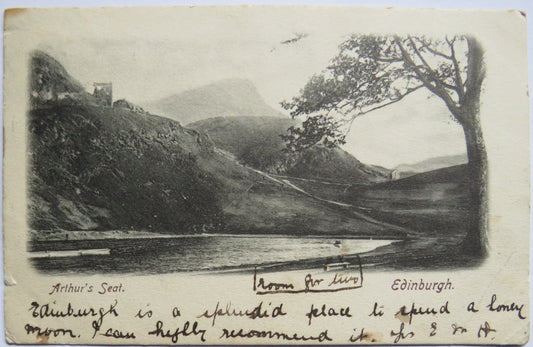 Arthur's Seat.
[room for two]
Edinburgh.
Edinburgh is a splendid place to spend a honey
moon. I can highly recommend it.